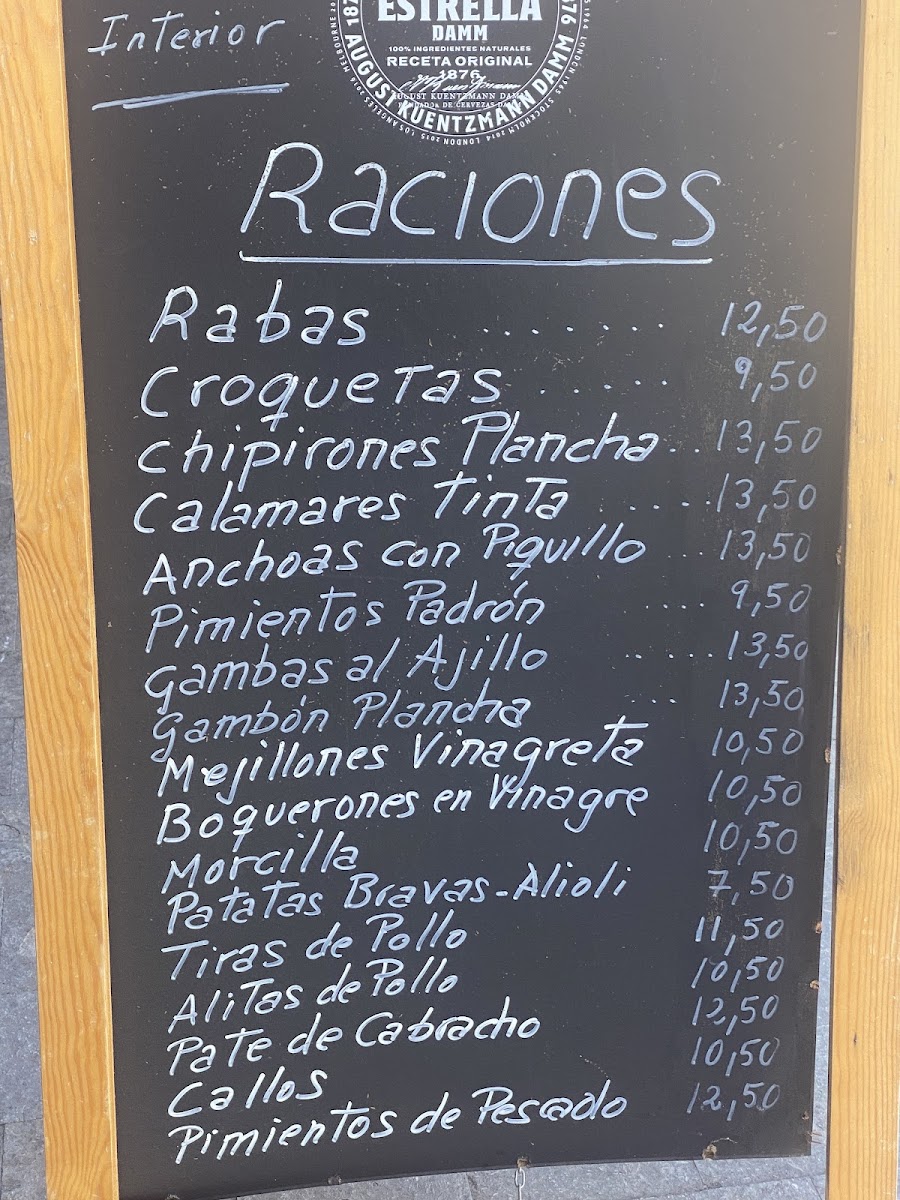 Interior
ESTRELLA
DAMM
100% INGREDIENTES NATURALES
RECETA ORIGINAL
1876
AUGUST KUENTZMANN DAMM
FUNDADOR DE CERVEZAS DAMM
AUGUST KUENTZMANN DAMM
LOS ANGELES 2014 LONDON 2015 STOCKHOLM 2014
Raciones
Rabas ....... 12,50
Croquetas ...... 9,50
Chipirones Plancha .. 13,50
Calamares Tinta ..... 13,50
Anchoas con Piquillo ... 13,50
Pimientos Padrón .... 9,50
Gambas al Ajillo ..... 13,50
Gambón Plancha ... 13,50
Mejillones Vinagreta 10,50
Boquerones en Vinagre 10,50
Morcilla 10,50
Patatas Bravas-Alioli 7,50
Tiras de Pollo 11,50
Alitas de Pollo 10,50
Pate de Cabracho 12,50
Callos 10,50
Pimientos de Pescado 12,50